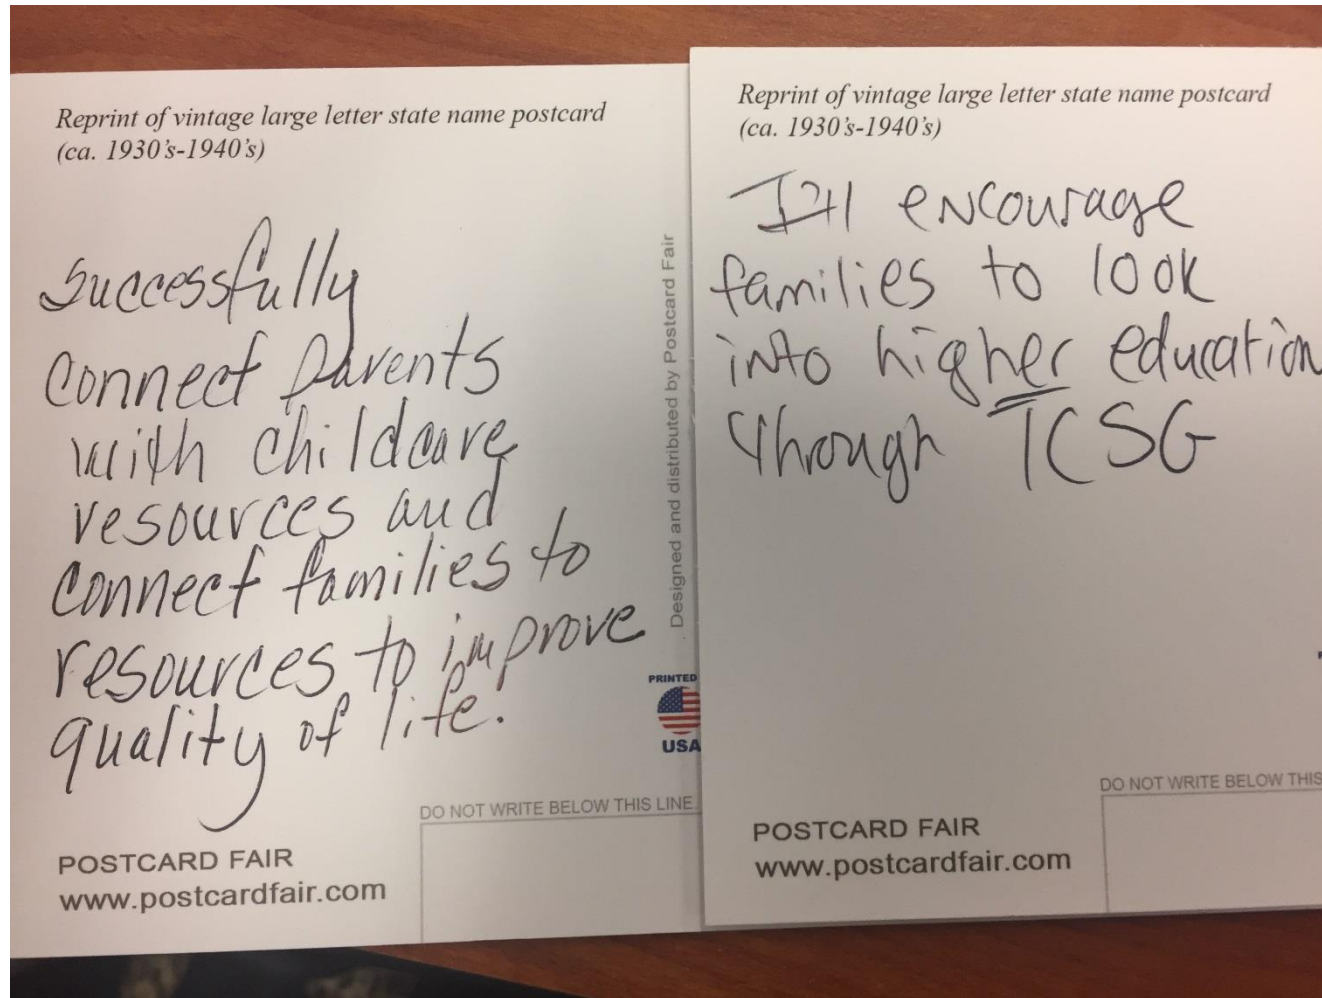 Reprint of vintage large letter state name postcard
(ca. 1930's-1940's)
Successfully
connect parents
with childcare
resources and
connect families to
resources to improve
quality of life.
Designed and distributed by Postcard Fair
PRINTED
USA
DO NOT WRITE BELOW THIS LINE
POSTCARD FAIR
www.postcardfair.com
Reprint of vintage large letter state name postcard
(ca. 1930's-1940's)
I'll encourage
families to look
into higher education
through TCSG
DO NOT WRITE BELOW THIS
POSTCARD FAIR
www.postcardfair.com